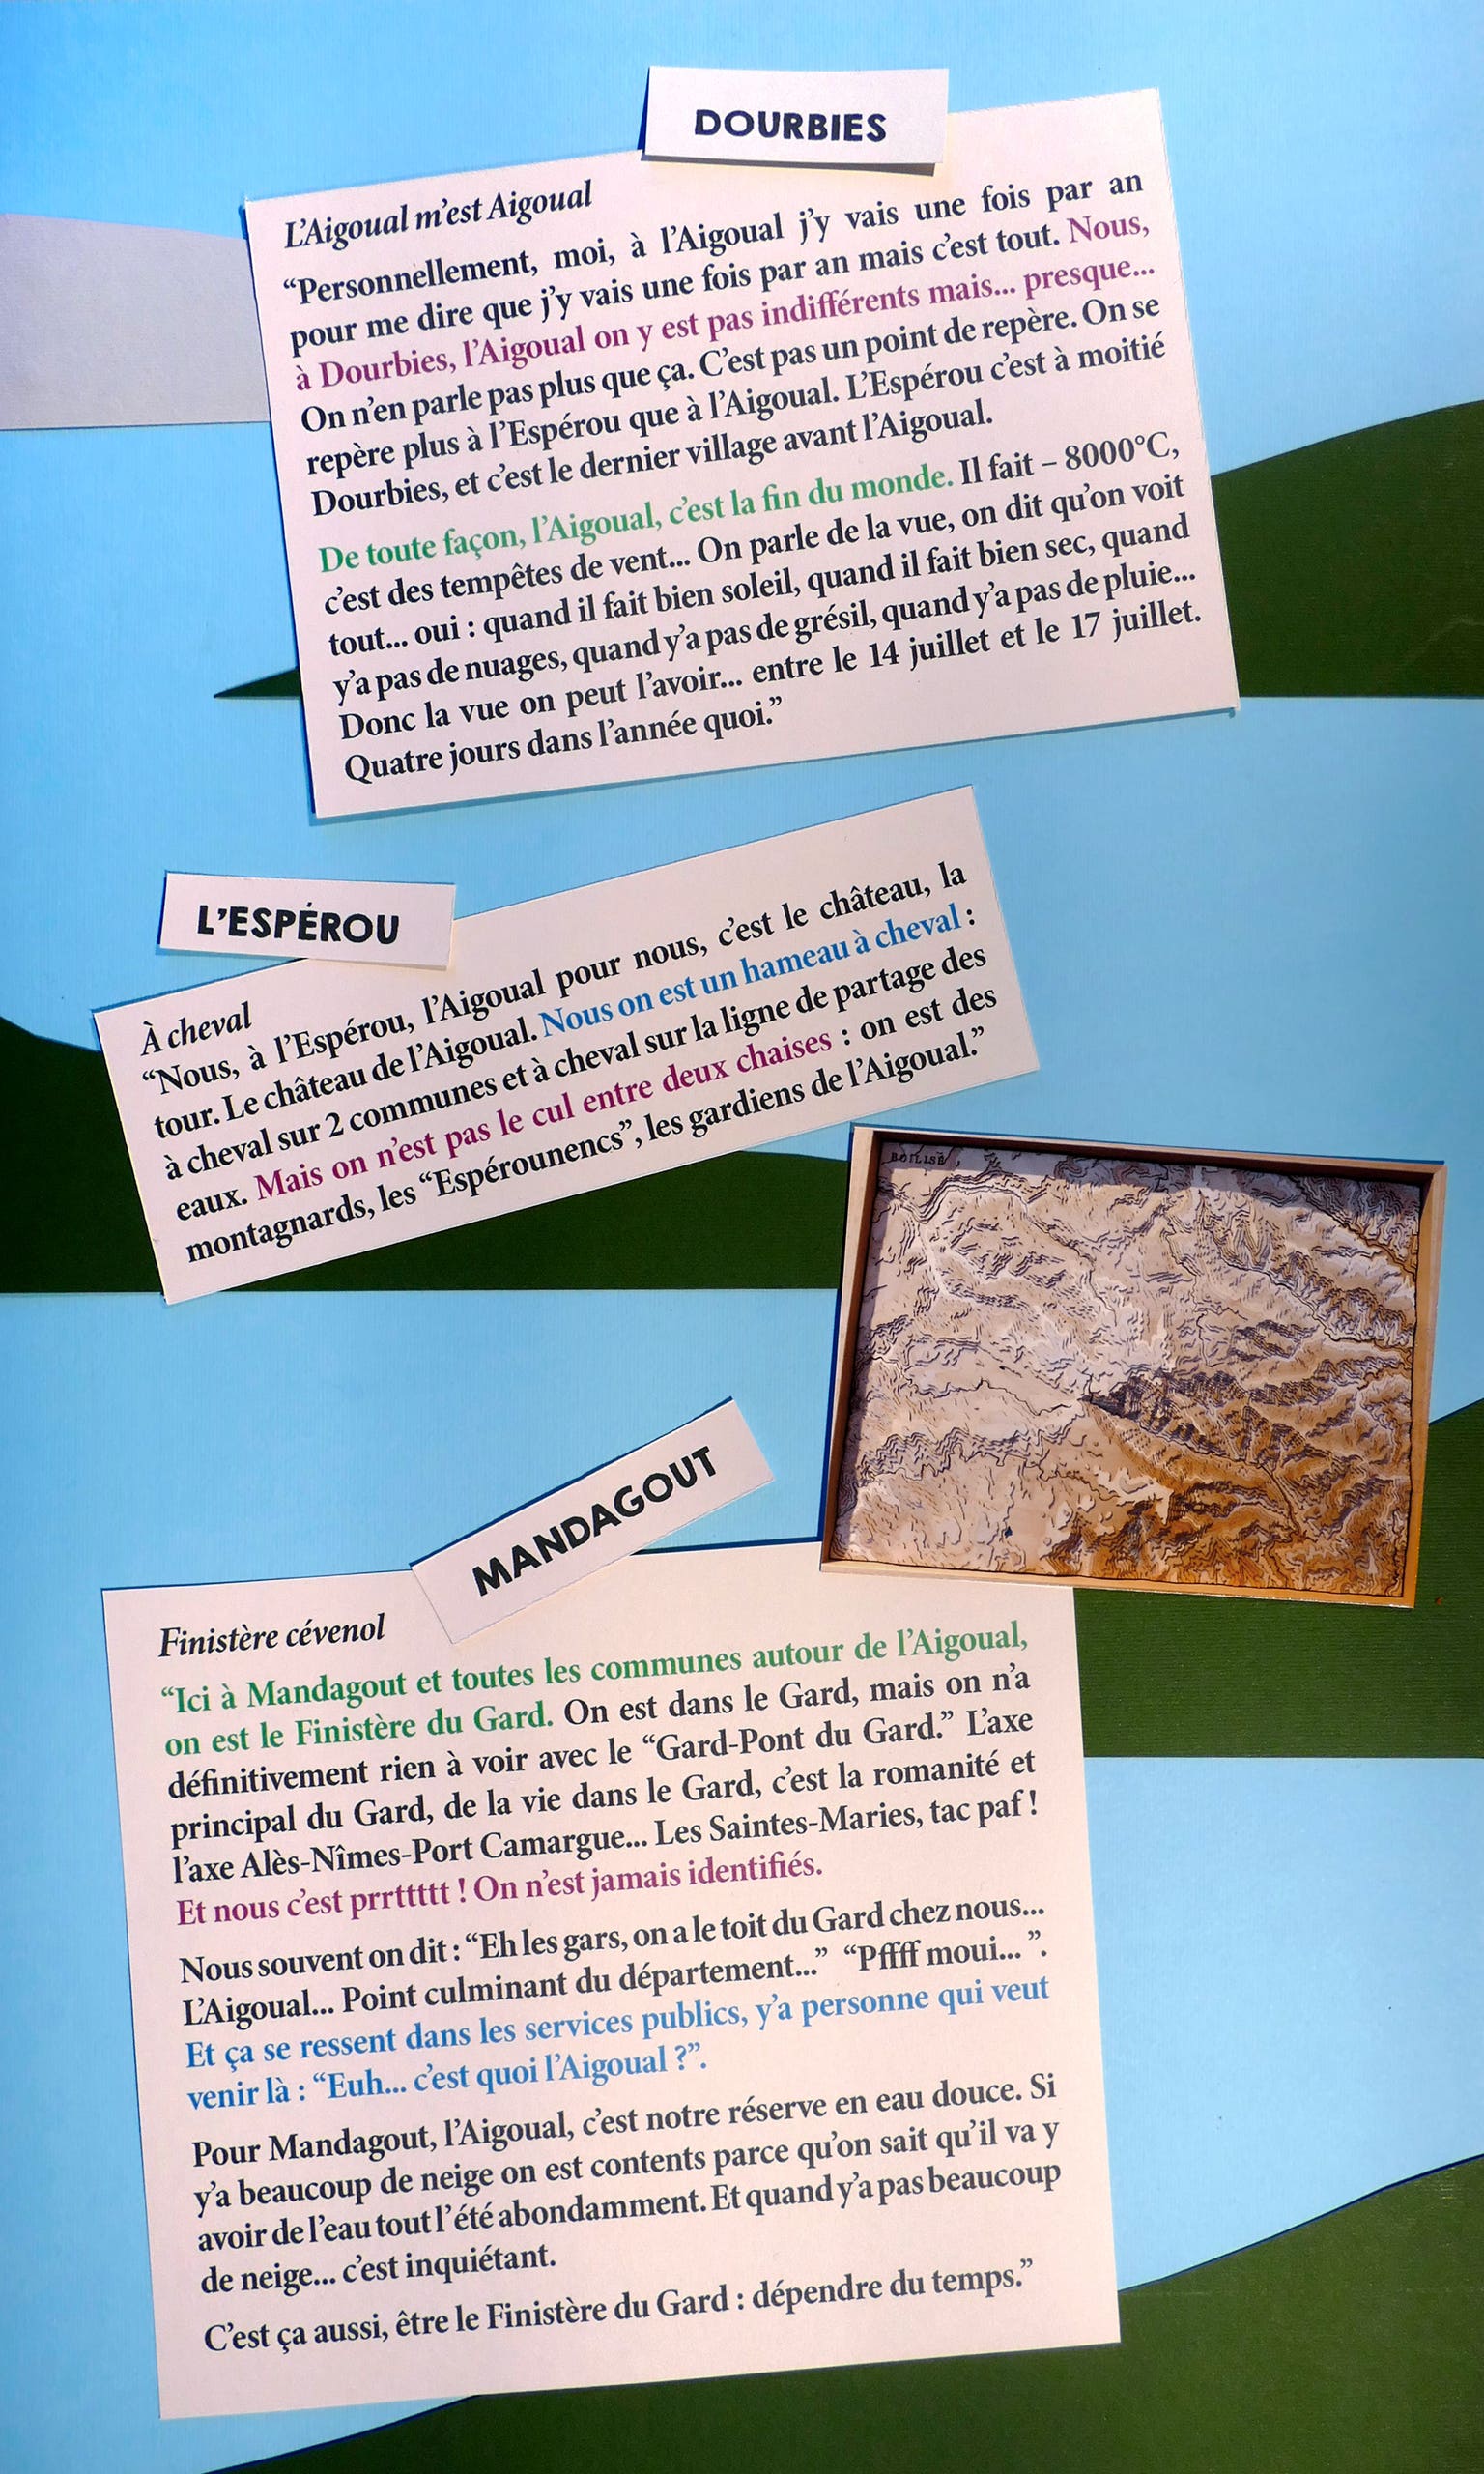 DOURBIES
L’Aigoual m’est Aigoual
“Personnellement, moi, à l’Aigoual j’y vais une fois par an
pour me dire que j’y vais une fois par an mais c’est tout. Nous,
à Dourbies, l’Aigoual on y est pas indifférents mais... presque...
On n’en parle pas plus que ça. C’est pas un point de repère. On se
repère plus à l’Espérou que à l’Aigoual. L’Espérou c’est à moitié
Dourbies, et c’est le dernier village avant l’Aigoual.
De toute façon, l’Aigoual, c’est la fin du monde. Il fait – 8000°C,
c’est des tempêtes de vent... On parle de la vue, on dit qu’on voit
tout... oui : quand il fait bien soleil, quand il fait bien sec, quand
y’a pas de nuages, quand y’a pas de grésil, quand y’a pas de pluie...
Donc la vue on peut l’avoir... entre le 14 juillet et le 17 juillet.
Quatre jours dans l’année quoi.”
L’ESPÉROU
À cheval
“Nous, à l’Espérou, l’Aigoual pour nous, c’est le château, la
tour. Le château de l’Aigoual. Nous on est un hameau à cheval :
à cheval sur 2 communes et à cheval sur la ligne de partage des
eaux. Mais on n’est pas le cul entre deux chaises : on est des
montagnards, les “Espérounencs”, les gardiens de l’Aigoual.”
MANDAGOUT
Finistère cévenol
“Ici à Mandagout et toutes les communes autour de l’Aigoual,
on est le Finistère du Gard. On est dans le Gard, mais on n’a
définitivement rien à voir avec le “Gard-Pont du Gard.” L’axe
principal du Gard, de la vie dans le Gard, c’est la romanité et
l’axe Alès-Nîmes-Port Camargue... Les Saintes-Maries, tac paf !
Et nous c’est prrttttt ! On n’est jamais identifiés.
Nous souvent on dit : “Eh les gars, on a le toit du Gard chez nous...
L’Aigoual... Point culminant du département...” “Pffff moui... ”.
Et ça se ressent dans les services publics, y’a personne qui veut
venir là : “Euh... c’est quoi l’Aigoual ?”.
Pour Mandagout, l’Aigoual, c’est notre réserve en eau douce. Si
y’a beaucoup de neige on est contents parce qu’on sait qu’il va y
avoir de l’eau tout l’été abondamment. Et quand y’a pas beaucoup
de neige... c’est inquiétant.
C’est ça aussi, être le Finistère du Gard : dépendre du temps.”